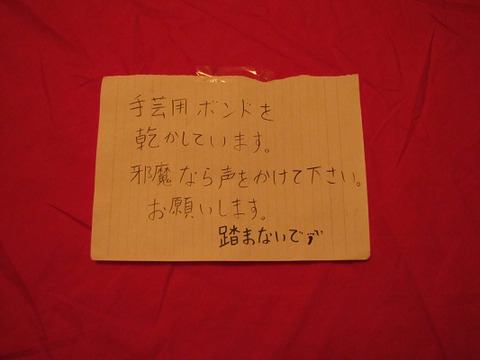 手芸用ボンドを
乾かしています。
邪魔なら声をかけて下さい。
お願いします。
踏まないで